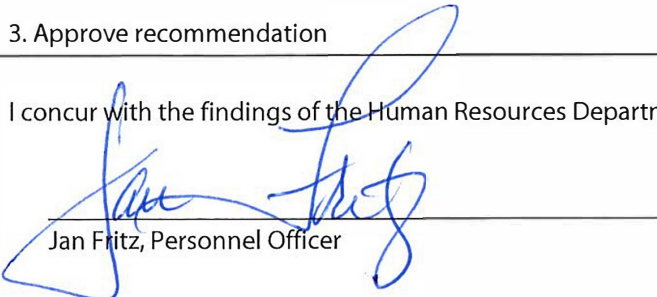 3. Approve recommendation
I concur with the findings of the Human Resources Departm
Jan Fritz
Jan Fritz, Personnel Officer